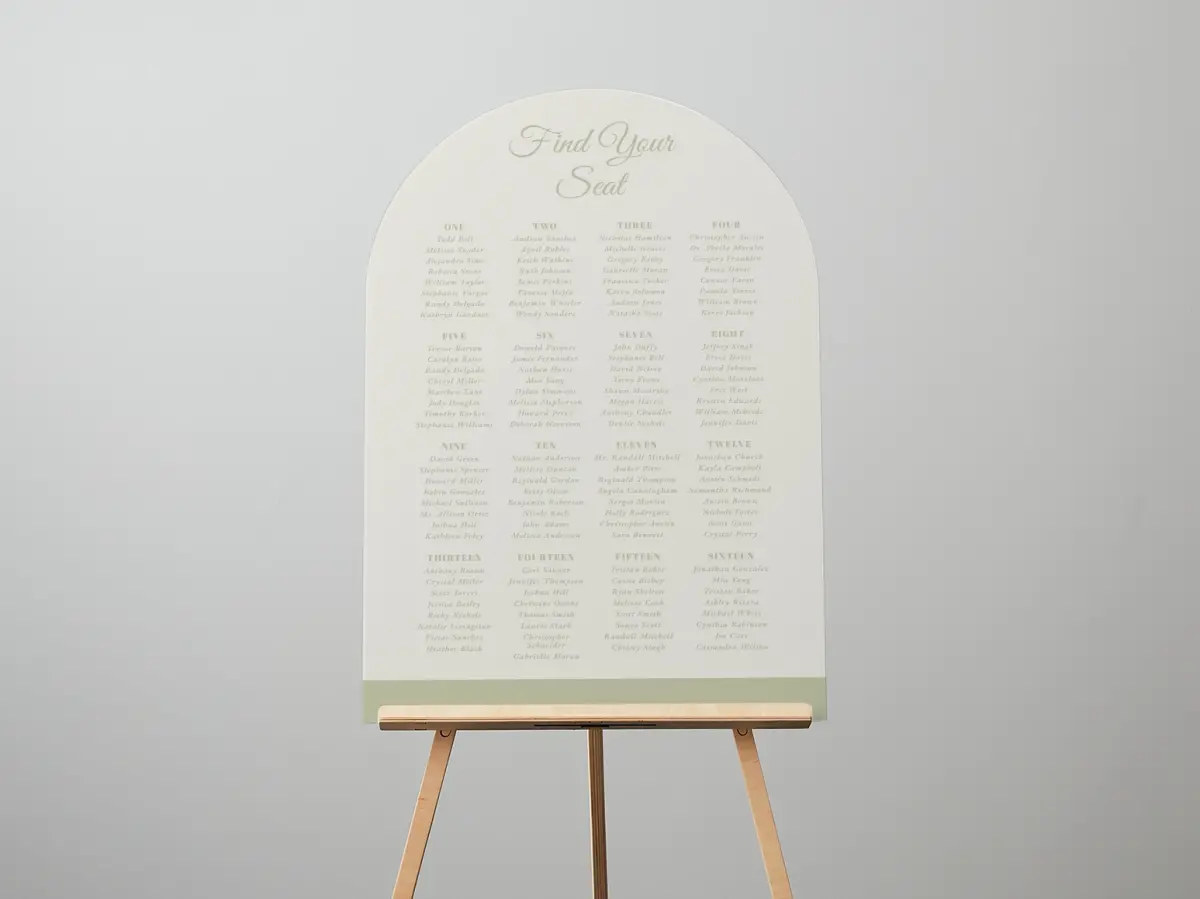 Find Your
Seat
ONE
Todd Bell
Melissa Snyder
William Taylor
Stephanie Vargas
Randy Delgado
Kathryn Gardner
TWO
Andrew Sanchez
April Robles
Keith Watkins
Noah Johnson
James Perkins
Benjamin Wheeler
Wendy Sanders
THREE
Nicholas Hamilton
Gregory Bixby
Gabrielle Moran
Francisco Tucker
Karen Solomon
Andrew Jones
Natasha Scott
FOUR
Christopher Austin
Dr. Sheila Morales
Gregory Franklin
Pamela Torres
William Brown
Kerri Jackson
FIVE
Carolyn Rose
Randy Delgado
Cheryl Miller
Matthew Lane
Judy Douglas
Timothy Barker
Stephanie Williams
SIX
Donald Vasquez
James Fernandez
Nathan Davis
Dylan Simmons
Melissa Stephenson
Howard Perez
Deborah Morrison
SEVEN
John Duffy
Stephanie Bell
David Nelson
Terry Evans
Megan Harris
Anthony Chandler
Denise Nichols
EIGHT
Jeffrey Singh
David Johnson
Cynthia Martinez
Eric West
Kristen Edwards
William Mcbride
Jennifer Davis
NINE
David Green
Stephanie Spencer
Howard Miller
Robin Gonzalez
Michael Sullivan
Ms. Allison Ortiz
Joshua Hall
Kathleen Foley
TEN
Nathan Anderson
Melissa Duncan
Reginald Gordon
Betsy Nixon
Benjamin Roberson
Nicole Koch
Jake Adams
Melissa Anderson
ELEVEN
Mr. Randall Mitchell
Amber Pitts
Reginald Thompson
Angela Cunningham
Sergio Martin
Holly Rodriguez
Christopher Austin
Sara Bennett
TWELVE
Jonathan Church
Kayla Campbell
Aaron Schmidt
Samantha Richmond
Austin Brown
Nichole Foster
Crystal Perry
THIRTEEN
Anthony Brown
Crystal Miller
Scott Torres
Joshua Bailey
Ricky Nichols
Natalie Livingston
Victor Sanchez
Heather Black
FOURTEEN
Jennifer Thompson
Joshua Hill
Thomas Smith
Laurie Clark
Christopher
Schneider
Gabrielle Moran
FIFTEEN
Tristan Baker
Ryan Shelton
Melissa Cook
Scott Smith
Sonya Scott
Randall Mitchell
Christy Singh
SIXTEEN
Jonathan Gonzalez
Mia Yang
Tristan Baker
Ashley Rivera
Michael White
Cynthia Robinson
Joe Cruz